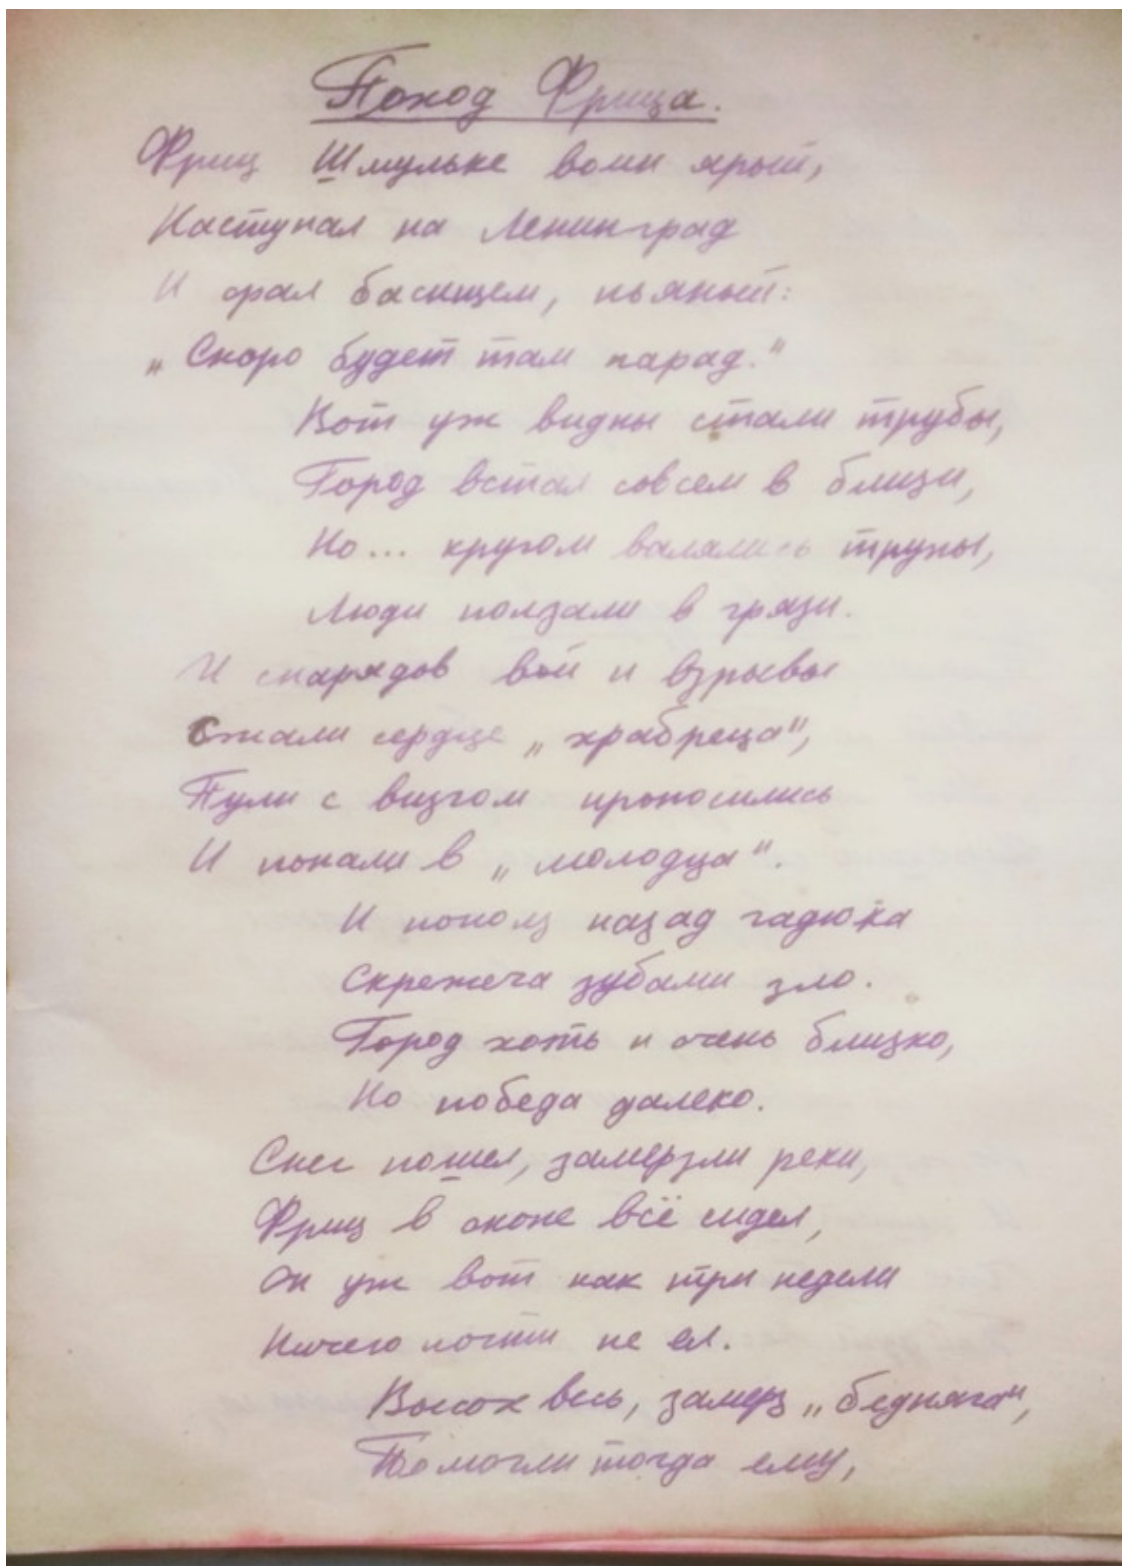 Поход Фрица.
Фриц Шмульке воин ярый,
Наступал на Ленинград
И орал басищем, пьяный:
„Скоро будет там парад."
Вот уж видны стали трубы,
Город встал совсем в близи,
Но... кругом валялись трупы,
Люди ползали в грязи.
И снарядов вой и взрывы
Сжали сердце „храбреца",
Пули с визгом проносились
И попали в „молодца".
И пополз назад гадюка
Скрежеча зубами зло.
Город хоть и очень близко,
Но победа далеко.
Снег пошел, замерзли реки,
Фриц в окопе всё сидел,
Он уж вот как три недели
Ничего почти не ел.
Высох весь, замерз „бедняга",
Помогли тогда ему,